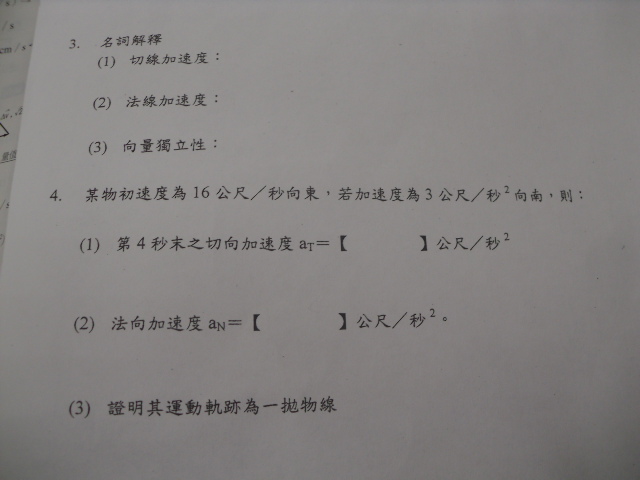 /s
cm/s
3. 名詞解釋
(1) 切線加速度：
(2) 法線加速度：
(3) 向量獨立性：
4. 某物初速度為 16 公尺／秒向東，若加速度為 3 公尺／秒² 向南，則：
(1) 第 4 秒末之切向加速度 aT＝【　　　】公尺／秒²
(2) 法向加速度 aN＝【　　　】公尺／秒²。
(3) 證明其運動軌跡為一拋物線